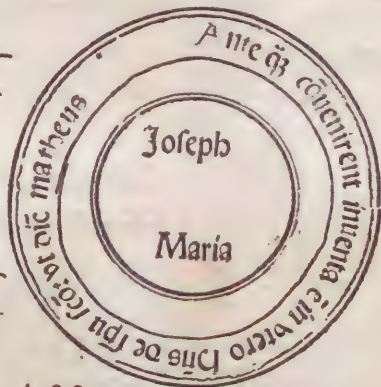 Ante q̄ꝫ cōuenirent inuenta ē in vtero hñs de ſpū ſcō: vt dic̄ matheus
Joſeph
Maria